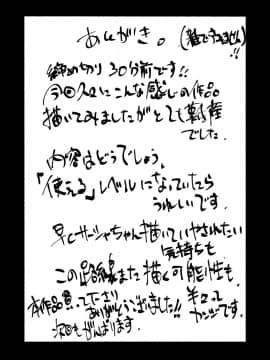 あとがき。
(雑ですみません)!!
締め切り30分前です!!
今回久々にこんな感じの作品
描いてみましたがとても新鮮
でした。
内容はどうでしょう、
「使える」レベルになっていたら
うれしいです。
早くサーシャちゃん描いていやされたい
気持ちも
この路線また描く可能性も
本作品買って下さり
ありがとうございました!!
次回もがんばります。